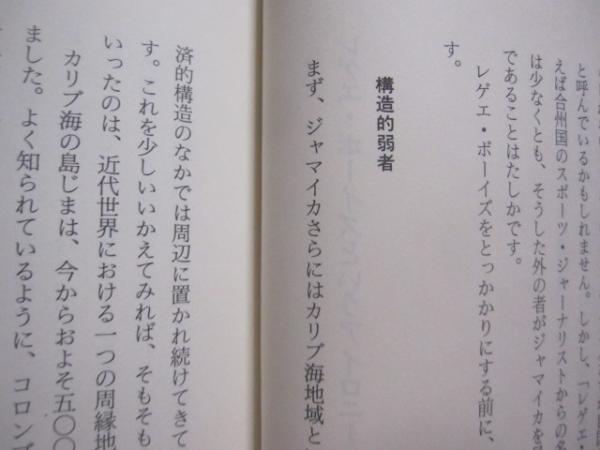 と呼んでいるかもしれません。しかし、「レゲエ・
えば合州国のスポーツ・ジャーナリストからの名
は少なくとも、そうした外の者がジャマイカを
であることはたしかです。
レゲエ・ボーイズをとっかかりにする前に、
す。
構造的弱者
まず、ジャマイカさらにはカリブ海地域と
済的構造のなかでは周辺に置かれ続けてきて
す。これを少しいいかえてみれば、そもそも
いったのは、近代世界における一つの周縁地
カリブ海の島じまは、今からおよそ五〇〇
ました。よく知られているように、コロンブ